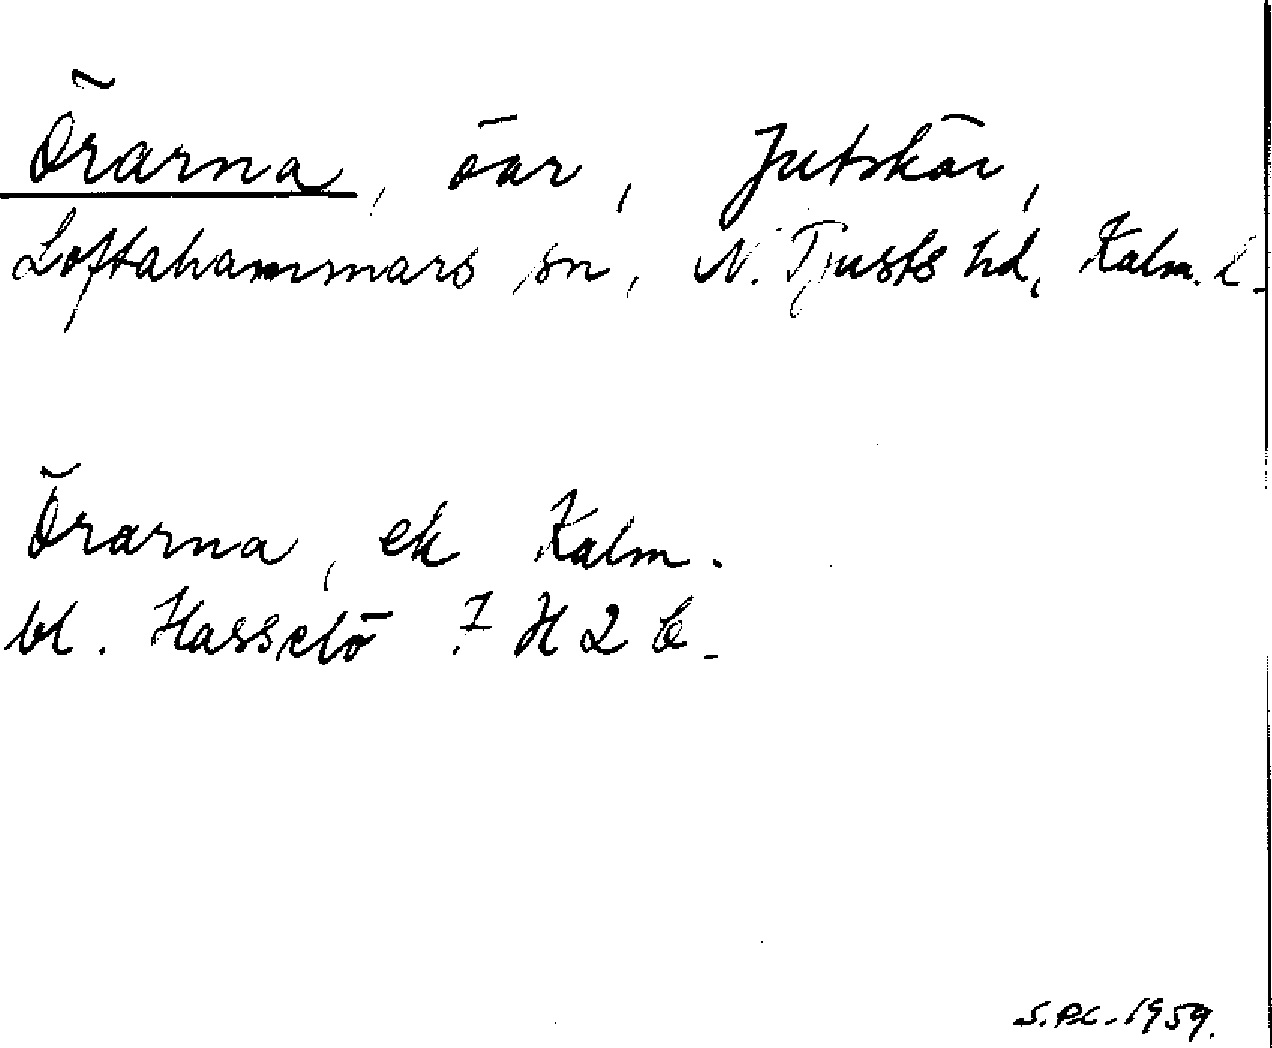 Örarna, öar, Jutskär,
Loftahammars sn, N. Tjusts hd, Kalm. l.
Örarna, ek Kalm.
bl. Hasselö 7 H 2 e.
S.P.C. 1959.